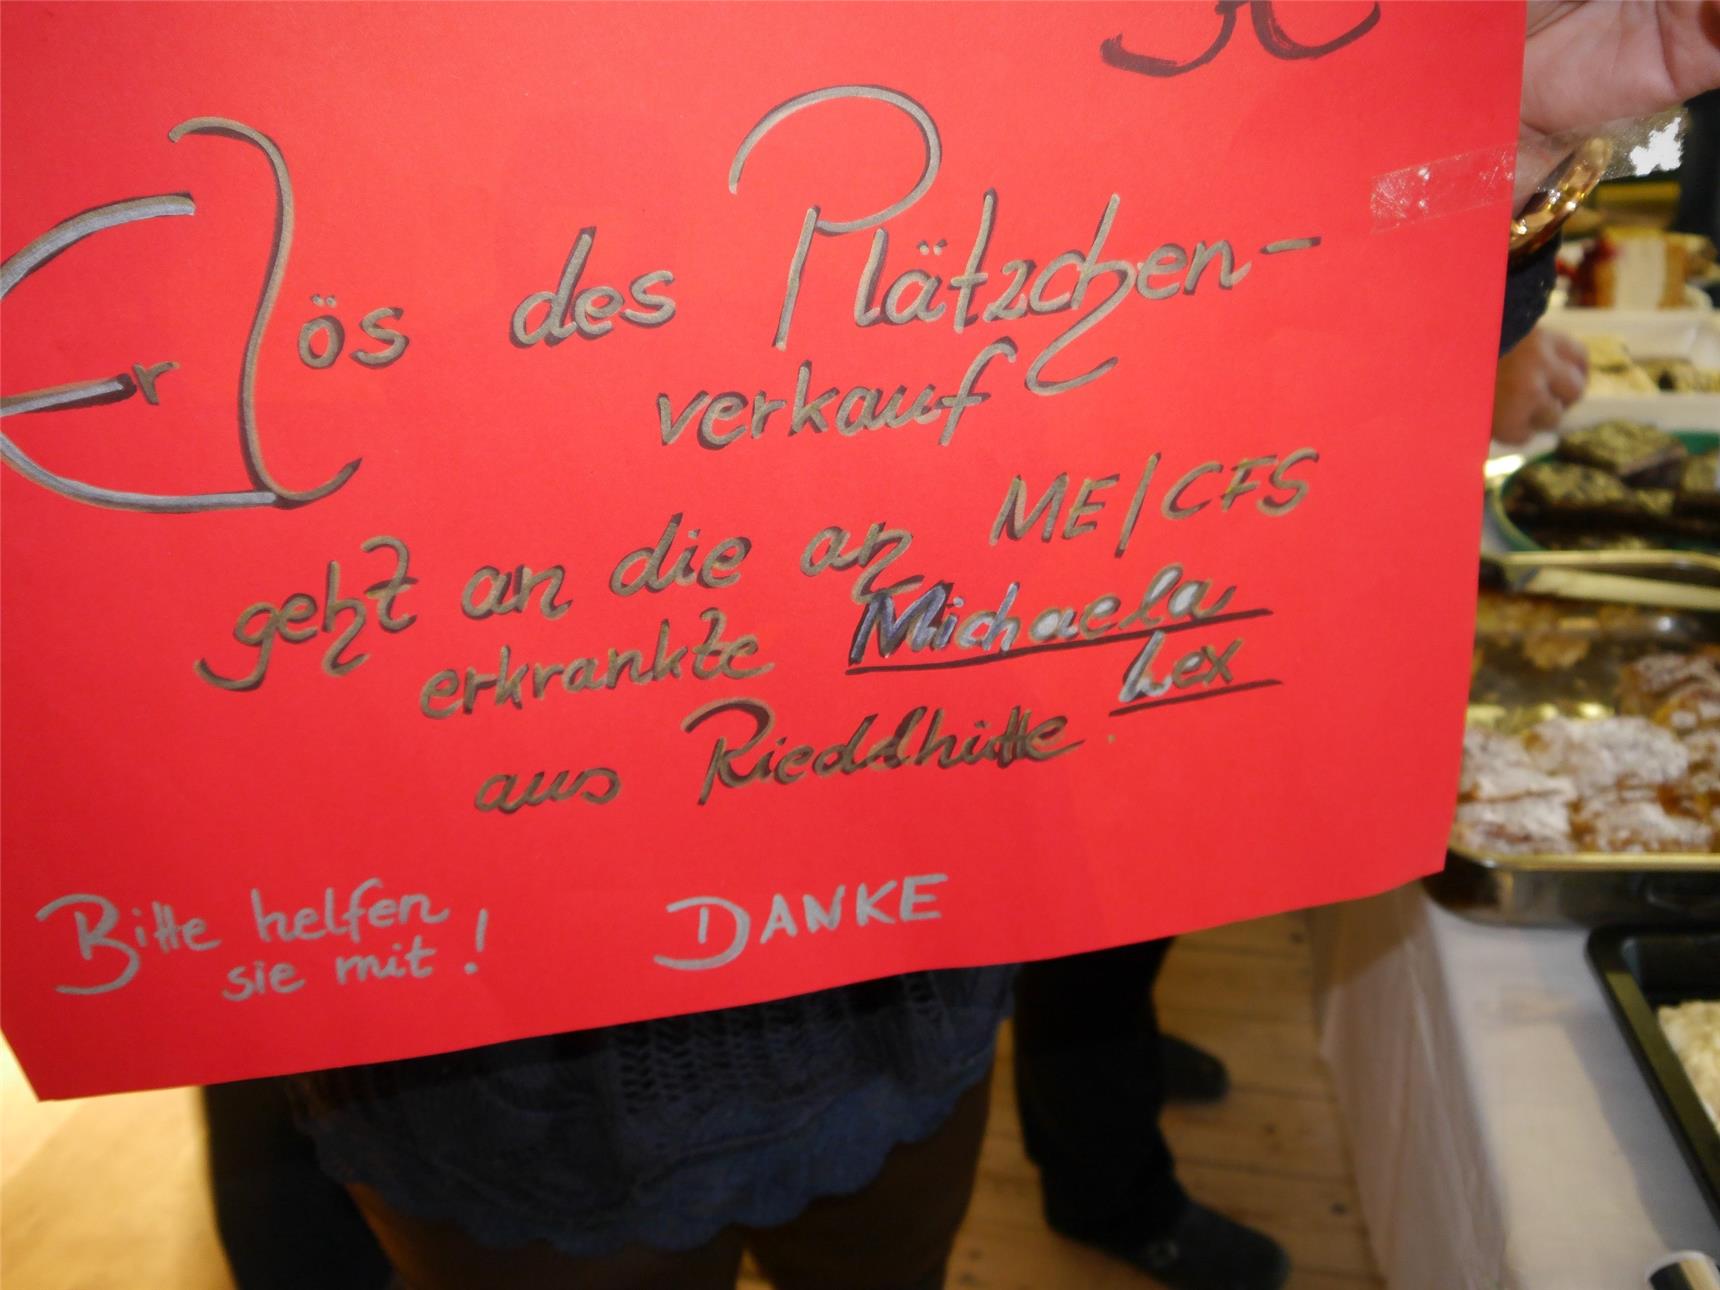 Erlös des Plätzchen-
verkauf
geht an die an ME/CFS
erkrankte Michaela
Lex
aus Riedlhütte.
Bitte helfen
sie mit!
DANKE